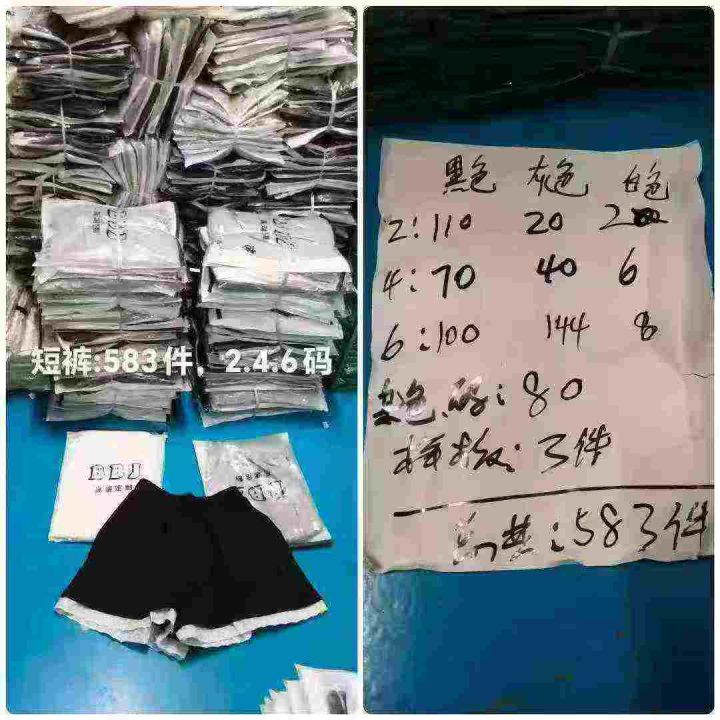 短裤:583件, 2.4.6码
BBJ
高端定制
黑色 灰色 白色
2:110 20 2
4:70 40 6
6:100 144 8
色 码:80
样板:3件
总共:583件